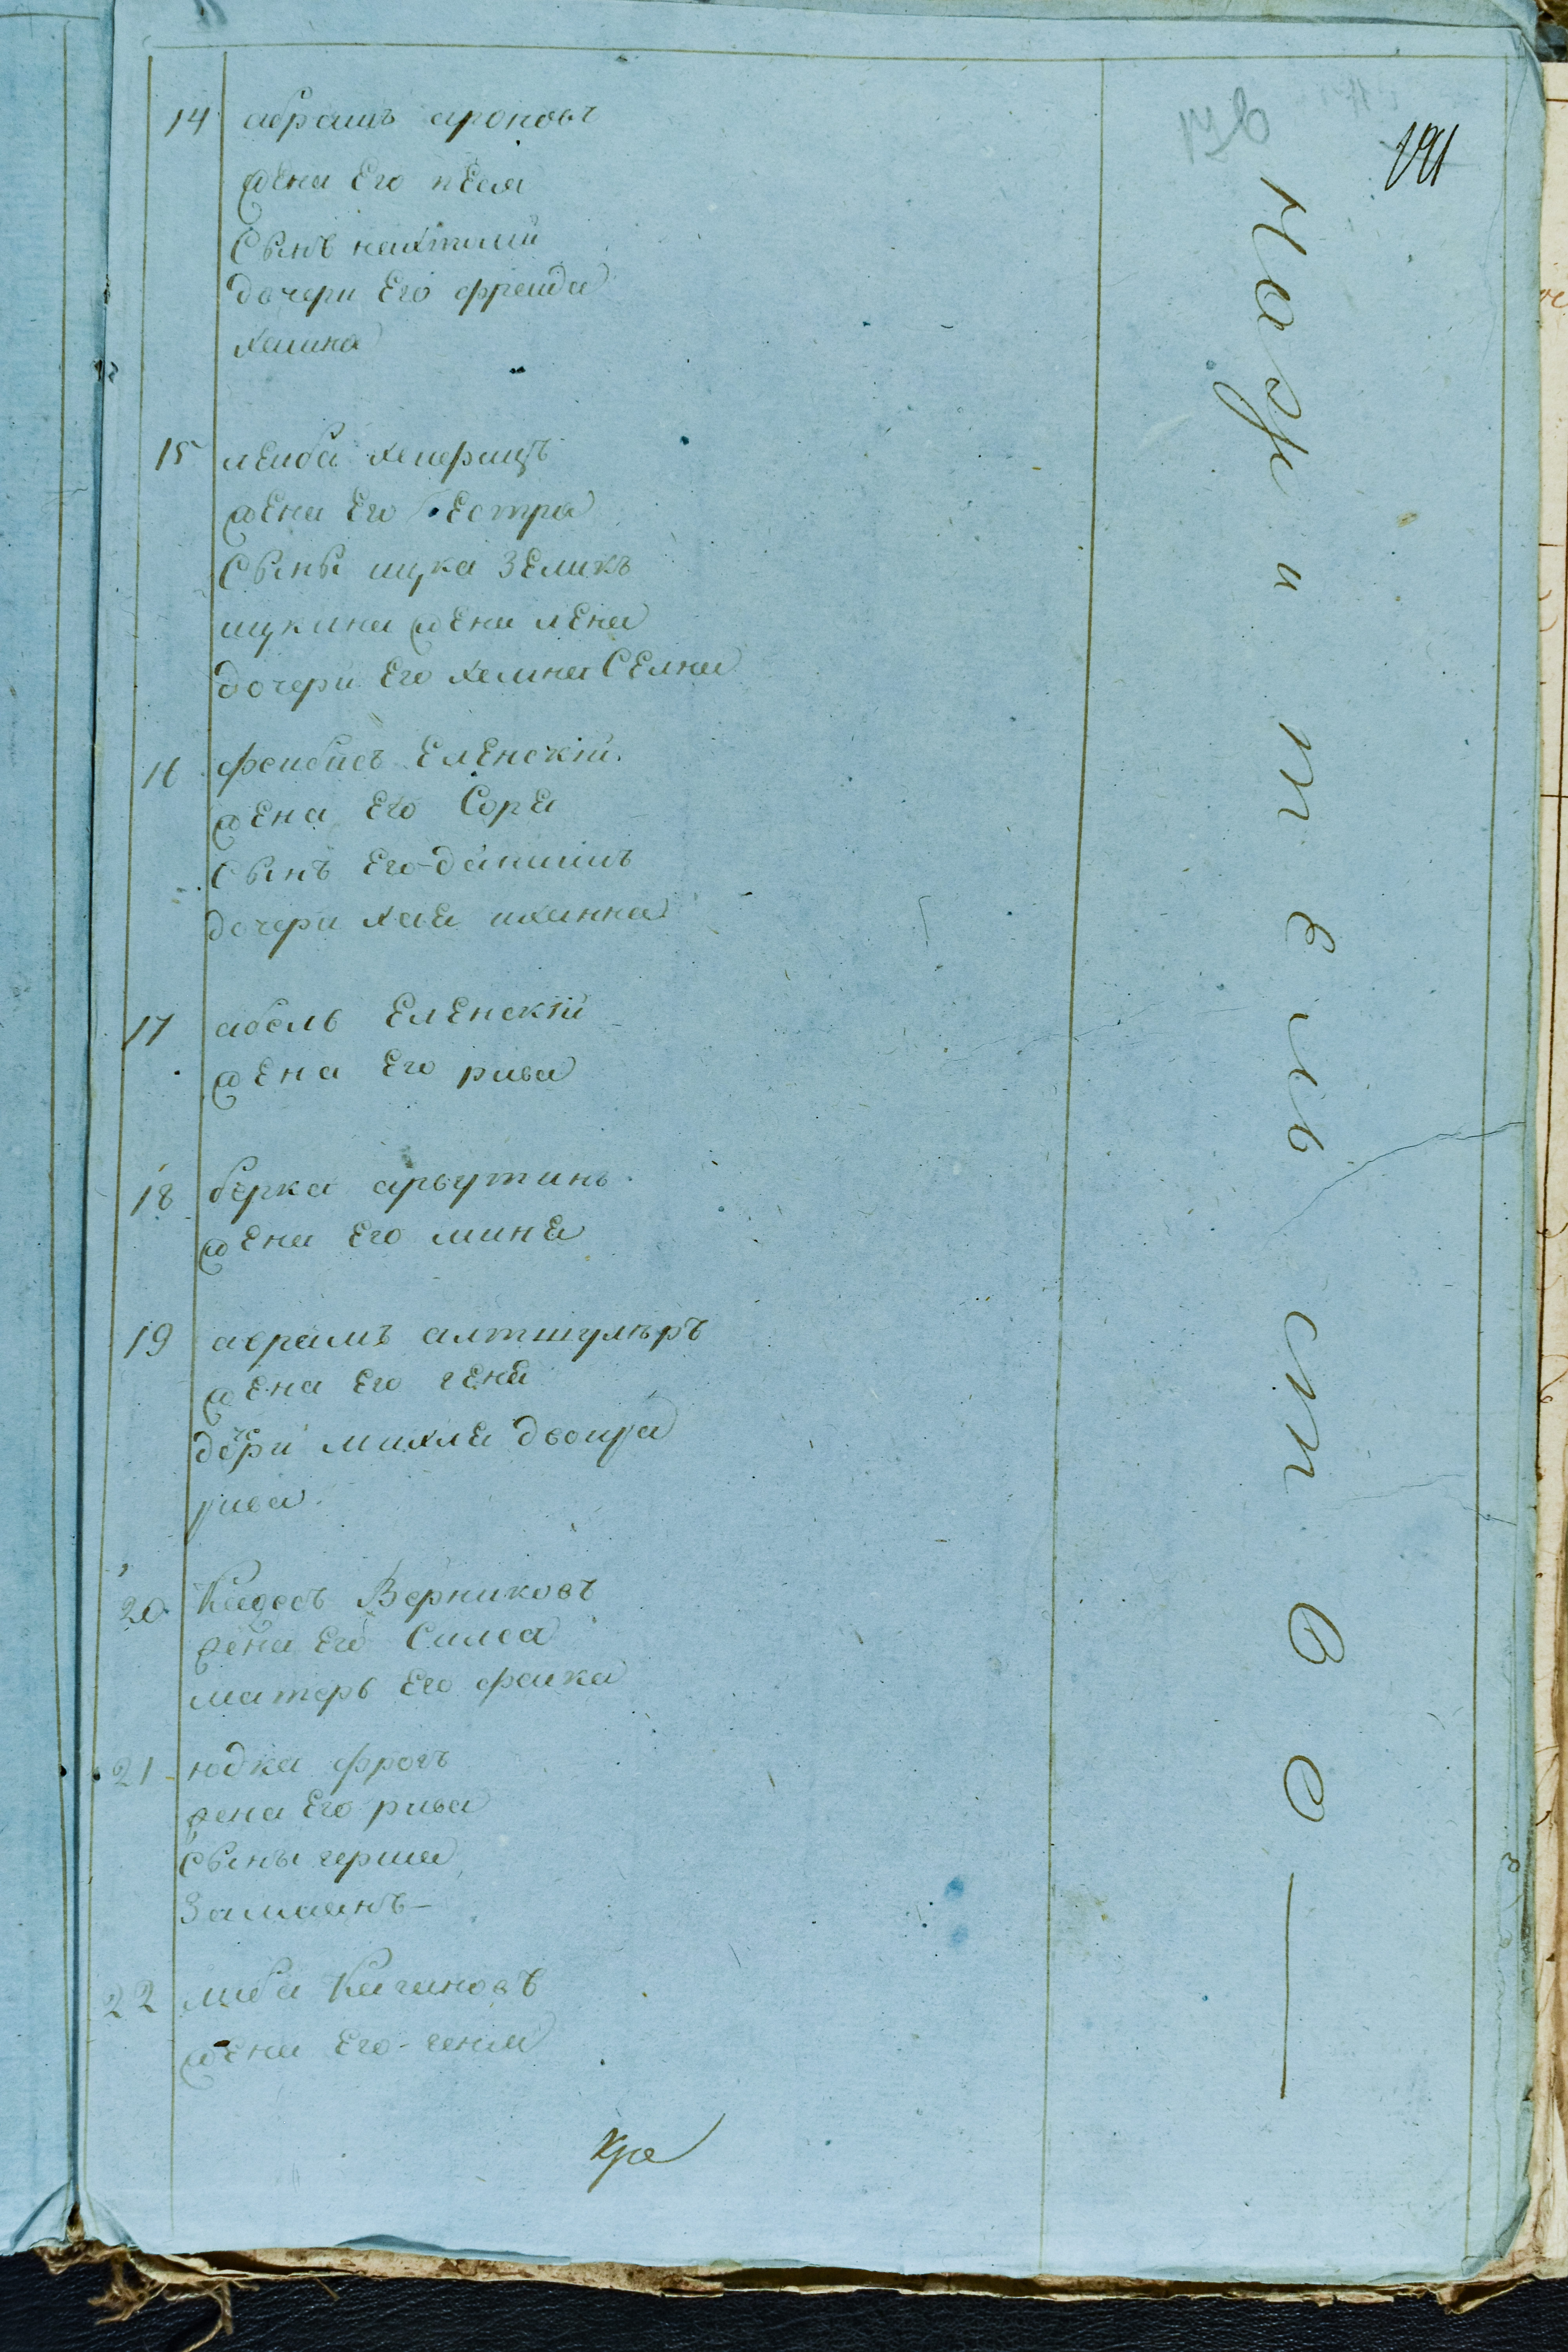 191
14 абрамъ ароновъ
жена Его пЕся
Сынъ нахтали
дочери Его фреида
хаина
15 лЕиба
жЕна Его бЕстра
Сыны ицка зЕликъ
ицкина жЕна лЕна
дочери Его хаина СЕлна
16 фаибисъ ЕлЕнскіи
жЕна Его Сора
Сынъ Его данилъ
дочери хая иханна
17 абель ЕлЕнскіи
жЕна Его рива
18 берка арьутинъ
жЕна Его мина
19 аврамъ алтшулъръ
жЕна Его гЕна
дочери михля двоира
рива
20 Верниковъ
жена Его Симса
матерь Его фаика
21 юдка фрогъ
жена Его рива
Сыны герша
Залманъ
22 либа Кагановъ
жЕна Его геня
Жительство